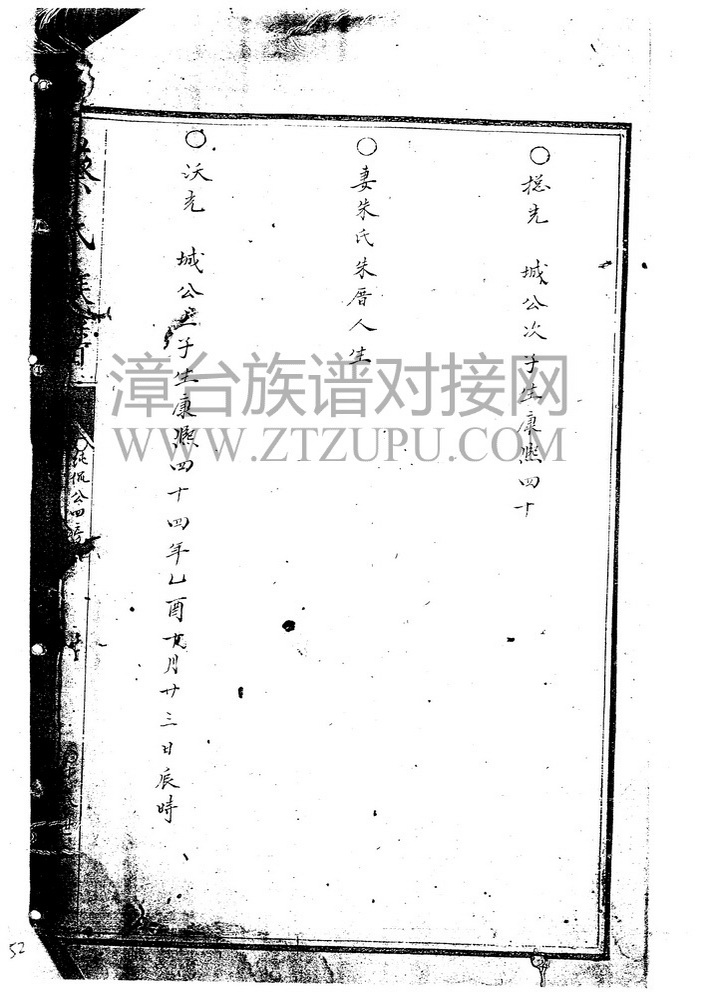 ○ 捴先 城公次子生康熙四十
○ 妻朱氏朱厝人生
○ 沃先 城公三子生康熙四十四年乙酉九月廿三日辰時
氏族譜
公四房
漳台族谱对接网
WWW.ZTZUPU.COM
52